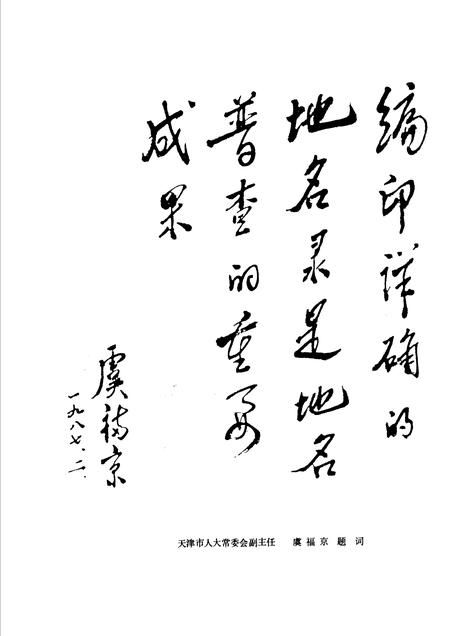 编印详确的
地名录是地名
普查的重要
成果
虞福京
一九八七.二.
天津市人大常委会副主任 虞福京 题词